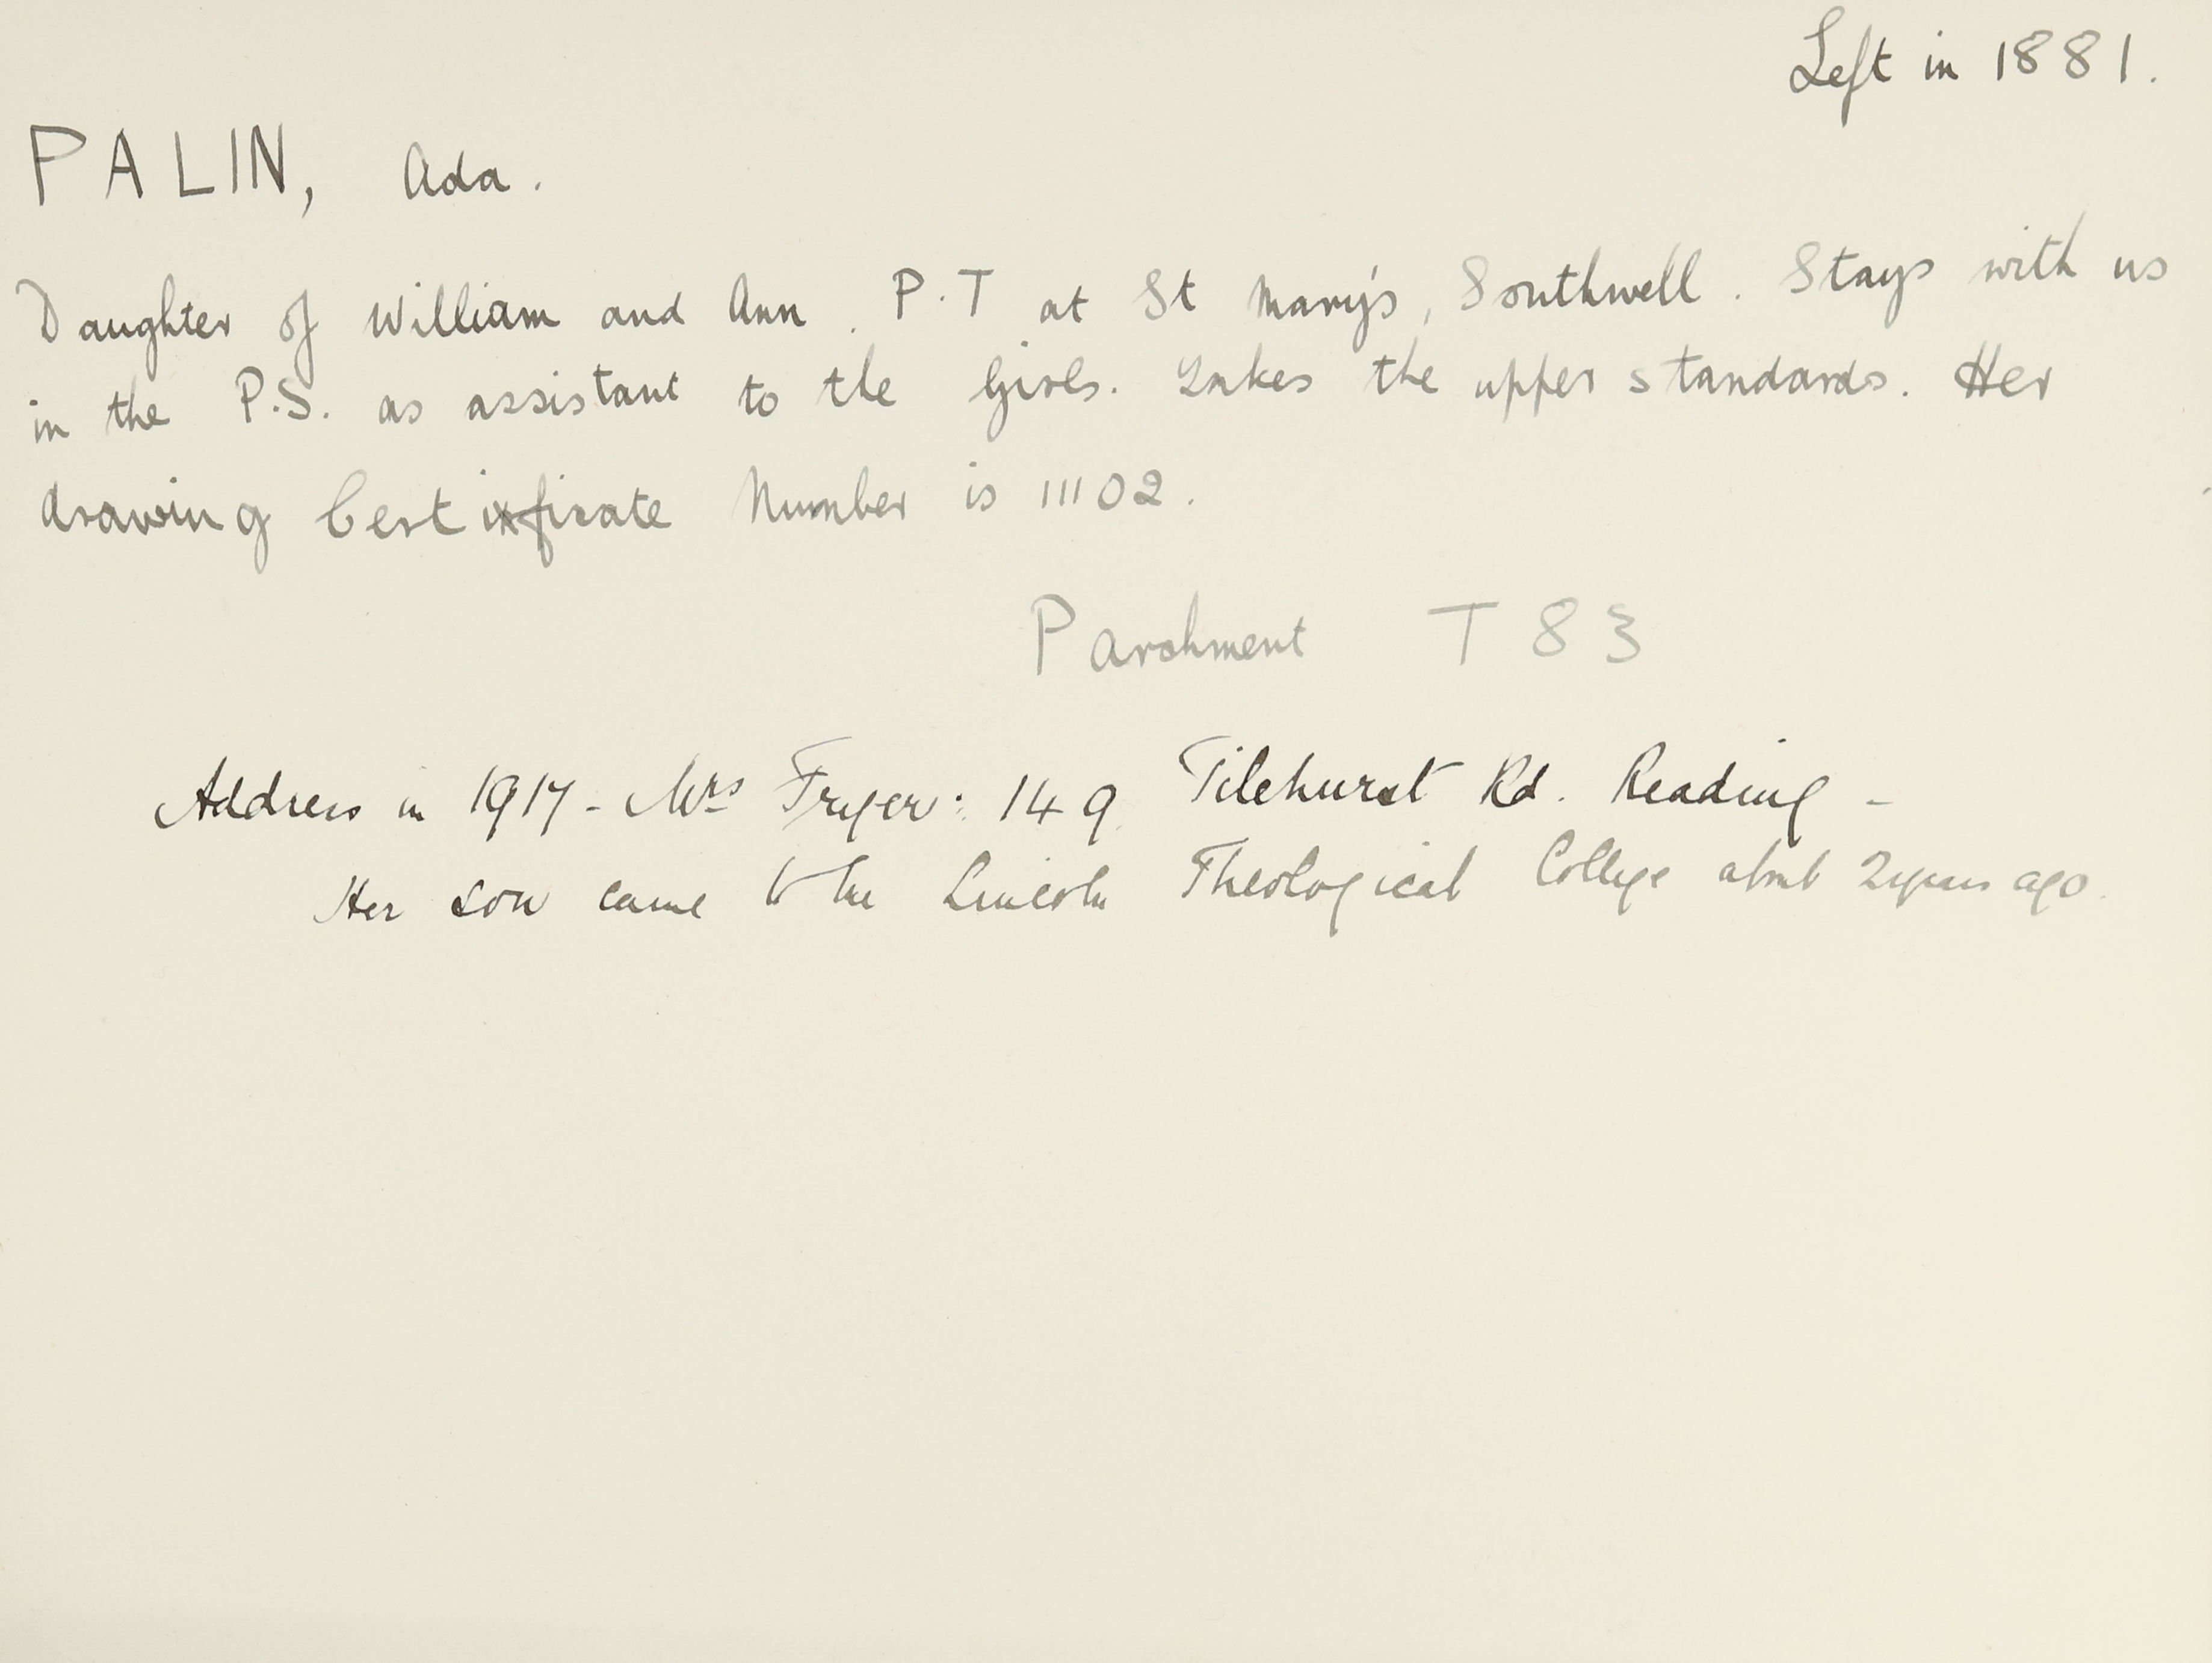 Left in 1881.
PALIN, Ada.
Daughter of William and Ann. P.T at St Mary's, Southwell. Stays with us
in the P.S. as assistant to the Girls. Takes the upper standards. Her
drawing Certificate Number is 11102.
Parchment T 83
Address in 1917 - Mrs Fryer: 149 Tilehurst Rd. Reading -
Her son came to the Lincoln Theological College about 2 years ago.